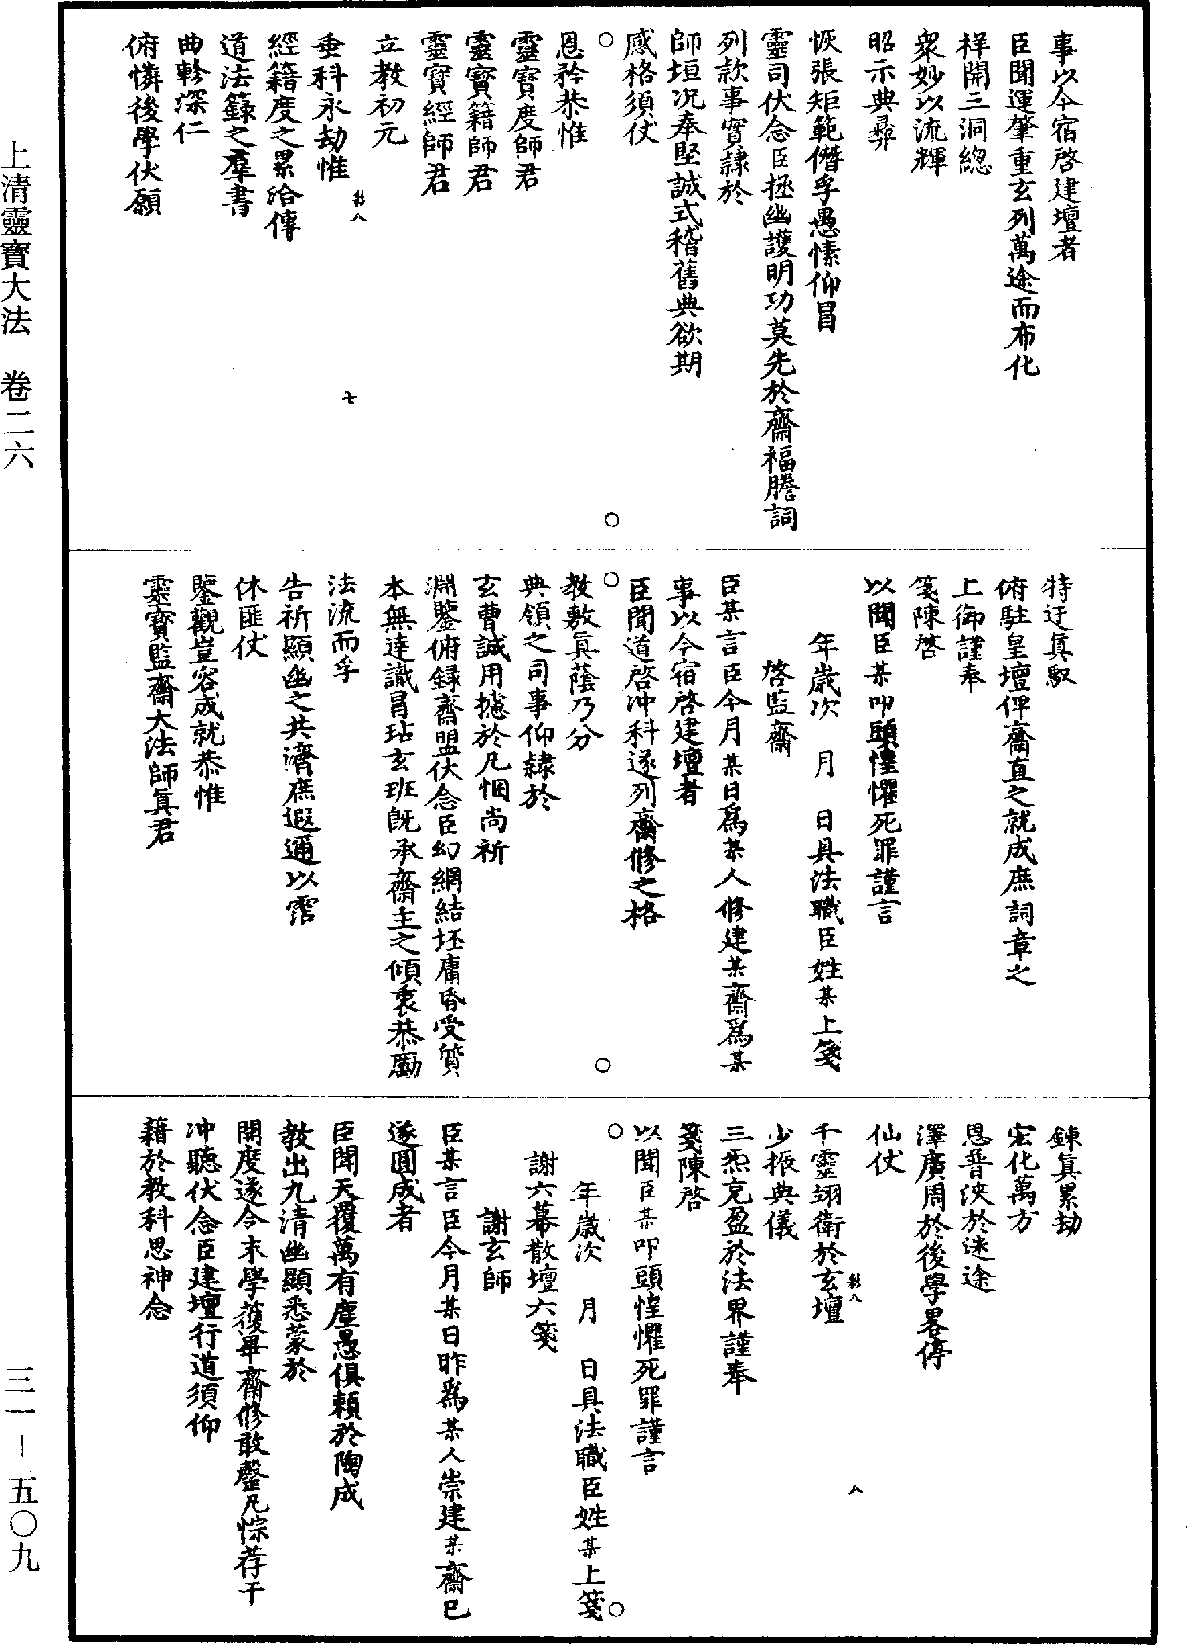 事以今宿啓建壇者
臣聞運肇重玄列萬途而布化
祥開三洞總
衆妙以流輝
昭示典彝
恢張矩範僭孚愚愫仰冒
靈司伏念臣拯幽護明功莫先於齋福謄詞
列款事實隸於
師垣况奉堅誠式稽舊典欲期
感格須仗
恩矜恭惟
靈寶度師君
靈寶籍師君
靈寶經師君
立教初元
垂科永劫惟
經籍度之累洽傳
道法籙之羣書
曲軫深仁
俯憐後學伏願
特迂真馭
俯駐皇壇俾齋直之就成庶詞章之
上御謹奉
箋陳啓
以聞臣某叩頭惶懼死罪謹言
年歲次　月　日具法職臣姓某上箋
啓監齋
臣某言臣今月某日爲某人修建某齋爲某
事以今宿啓建壇者
臣聞道啓冲科遂列齋修之格
教敷真蔭乃分
典領之司事仰隸於
玄曹誠用攄於凡悃尚祈
淵鑒俯録齋盟伏念臣幻網結坯庸昏受質
本無達識冒玷玄班既承齋主之傾衷恭勵
法流而孚
告祈顯幽之共濟庶遐邇以霑
休匪仗
鑒觀豈容成就恭惟
靈寶監齋大法師真君
鍊真累劫
宏化萬方
恩普浹於迷途
澤廣周於後學畧停
仙仗
千靈翊衛於玄壇
少振典儀
三炁充盈於法界謹奉
箋陳啓
以聞臣某叩頭惶懼死罪謹言
年歲次　月　日具法職臣姓某上箋
謝六幕散壇六箋
謝玄師
臣某言臣今月某日昨爲某人崇建某齋已
遂圓成者
臣聞天覆萬有塵愚俱賴於陶成
教出九清幽顯悉蒙於
開度遂令末學獲畢齋修敢罄凡悰荐干
冲聽伏念臣建壇行道須仰
藉於教科思神念
上清靈寶大法　卷二六
三一－五〇九
七
八